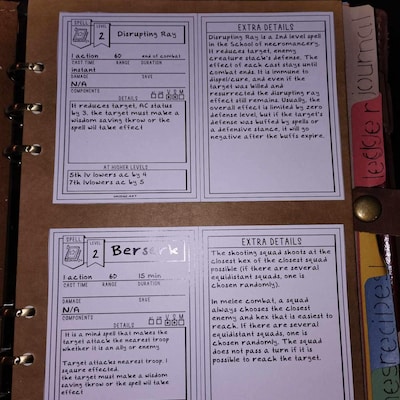 SPELL
LEVEL
2
Disrupting Ray
1 action
60
end of combat
CAST TIME
RANGE
DURATION
instant
DAMAGE
SAVE
N/A
COMPONENTS
V S M
DETAILS
It reduces target, AC status
by 3, the target must make a
wisdom saving throw or the
spell will take effect
AT HIGHER LEVELS
5th lv lowers ac by 4
7th lvlowers ac by 5
EXTRA DETAILS
Disrupting Ray is a 2nd level spell
in the School of necromancery.
It reduces target, enemy
creature stack's defense. The
effect of each cast stays until
combat ends. It is immune to
dispel/cure, and even if the
target was killed and
resurrected the disrupting ray
effect still remains. Usually, the
overall effect is limited by zero
defense level, but if the target's
defense was buffed by spells or
a defensive stance, it will go
negative after the buffs expire.
SPELL
LEVEL
2
Berserk
1 action
60
15 min
CAST TIME
RANGE
DURATION
DAMAGE
SAVE
N/A
COMPONENTS
V S M
DETAILS
It is a mind spell that makes the
target attack the nearest troop
whether it is an ally or enemy.
Target attacks nearest troop. 1
sqaure effected.
the target must make a wisdom
saving throw or the spell will take
effect
EXTRA DETAILS
The shooting squad shoots at the
closest hex of the closest squad
possible (if there are several
equidistant squads, one is
chosen randomly).
In melee combat, a squad
always chooses the closest
enemy and hex that is easiest to
reach. If there are several
equidistant squads, one is
chosen randomly. The squad
does not pass a turn if it is
possible to reach the target.
journal